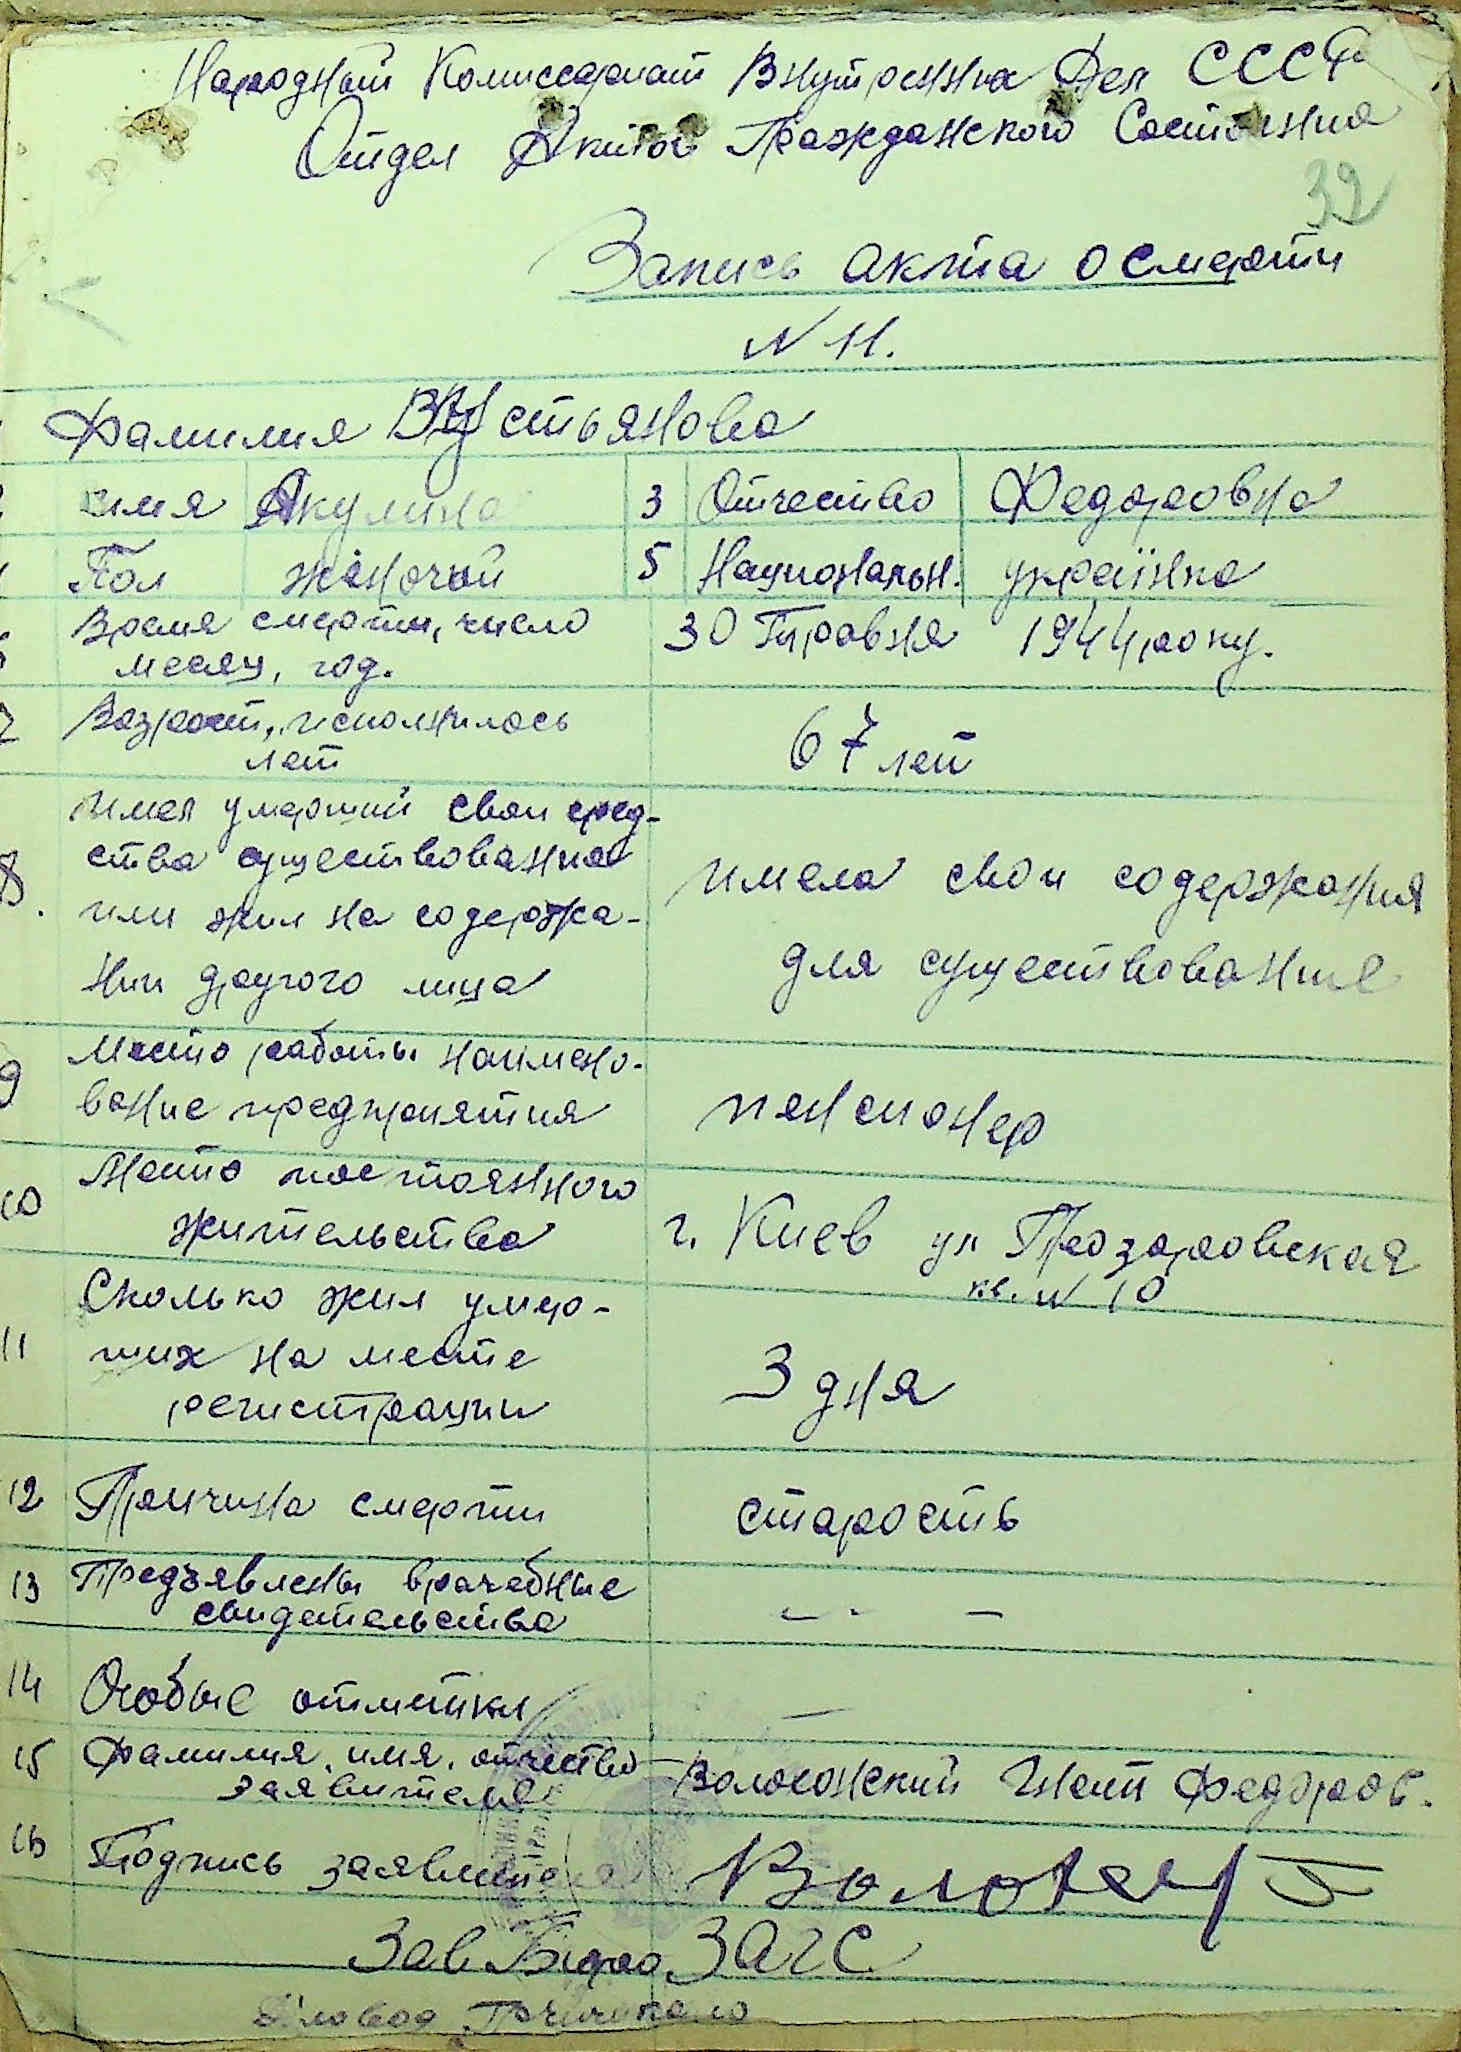 Народный Комиссариат Внутренних Дел СССР
Отдел Актов Гражданского Состояния
32
Запись акта о смерти
N 11.
Фамилия Устьянова
имя Акулина 3 Отчество Федоровна
Пол жіночий 5 Национальн. українка
Время смерти, число месяц, год. 30 Травня 1944 року.
Возраст, исполнилось лет 67 лет
8. имел умерший свои сред-
ства существования
или жил на содержа-
нии другого лица
имела свои содержания
для существования
9 Место работы наимено-
вание предприятия
пенсионер
10 Место постоянного
жительства
г. Киев ул Прозоровская
кв. N 10
11 Сколько жил умер-
ших на месте
регистрации
3 дня
12 Причина смерти старость
13 Предъявлены врачебные
свидетельства
— —
14 Особые отметки —
15 Фамилия, имя, отчество
заявителя
Федоров.
16 Подпись заявителя
Зав Бюро ЗАГС
Діловод